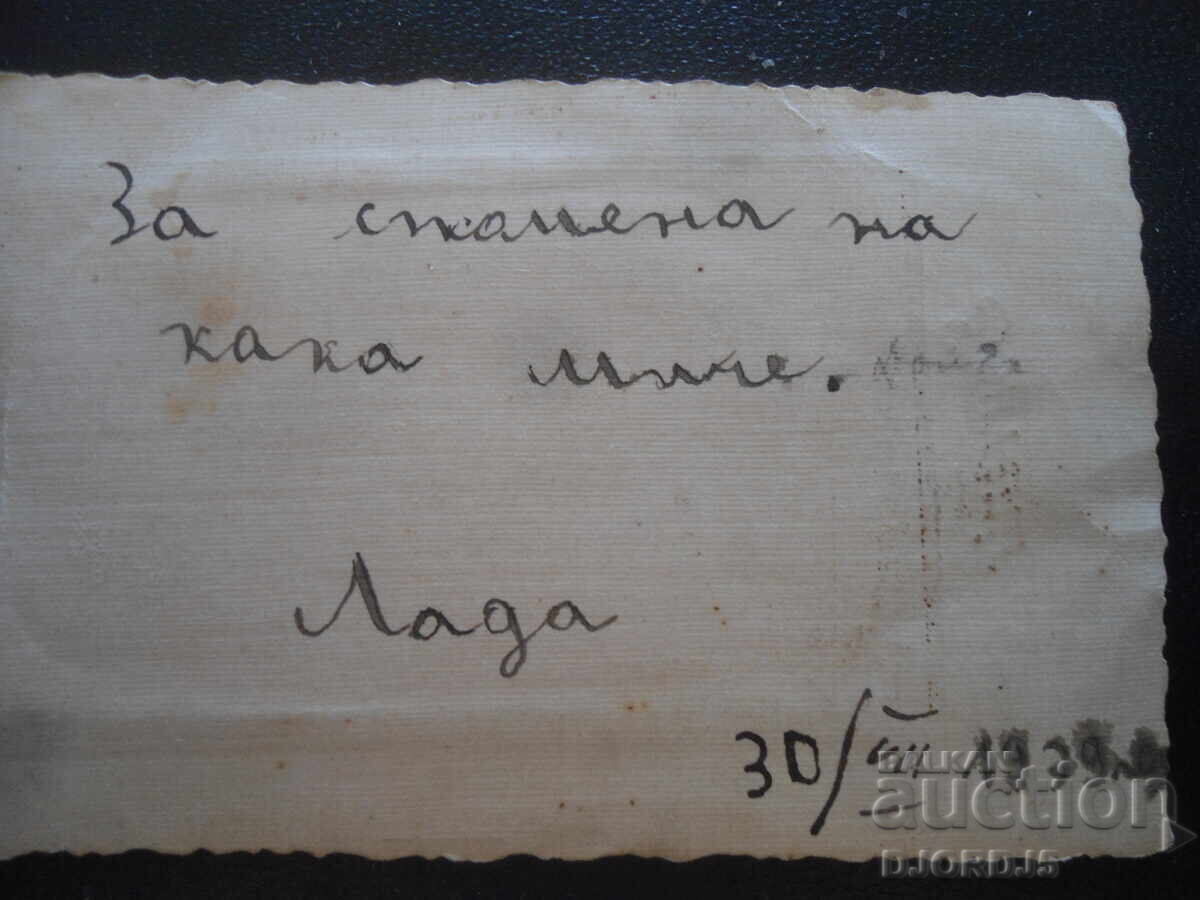 За спомена на
кака Миче.
Лада
30/VII 1939г.
BALKAN
auction
DJORDJ5